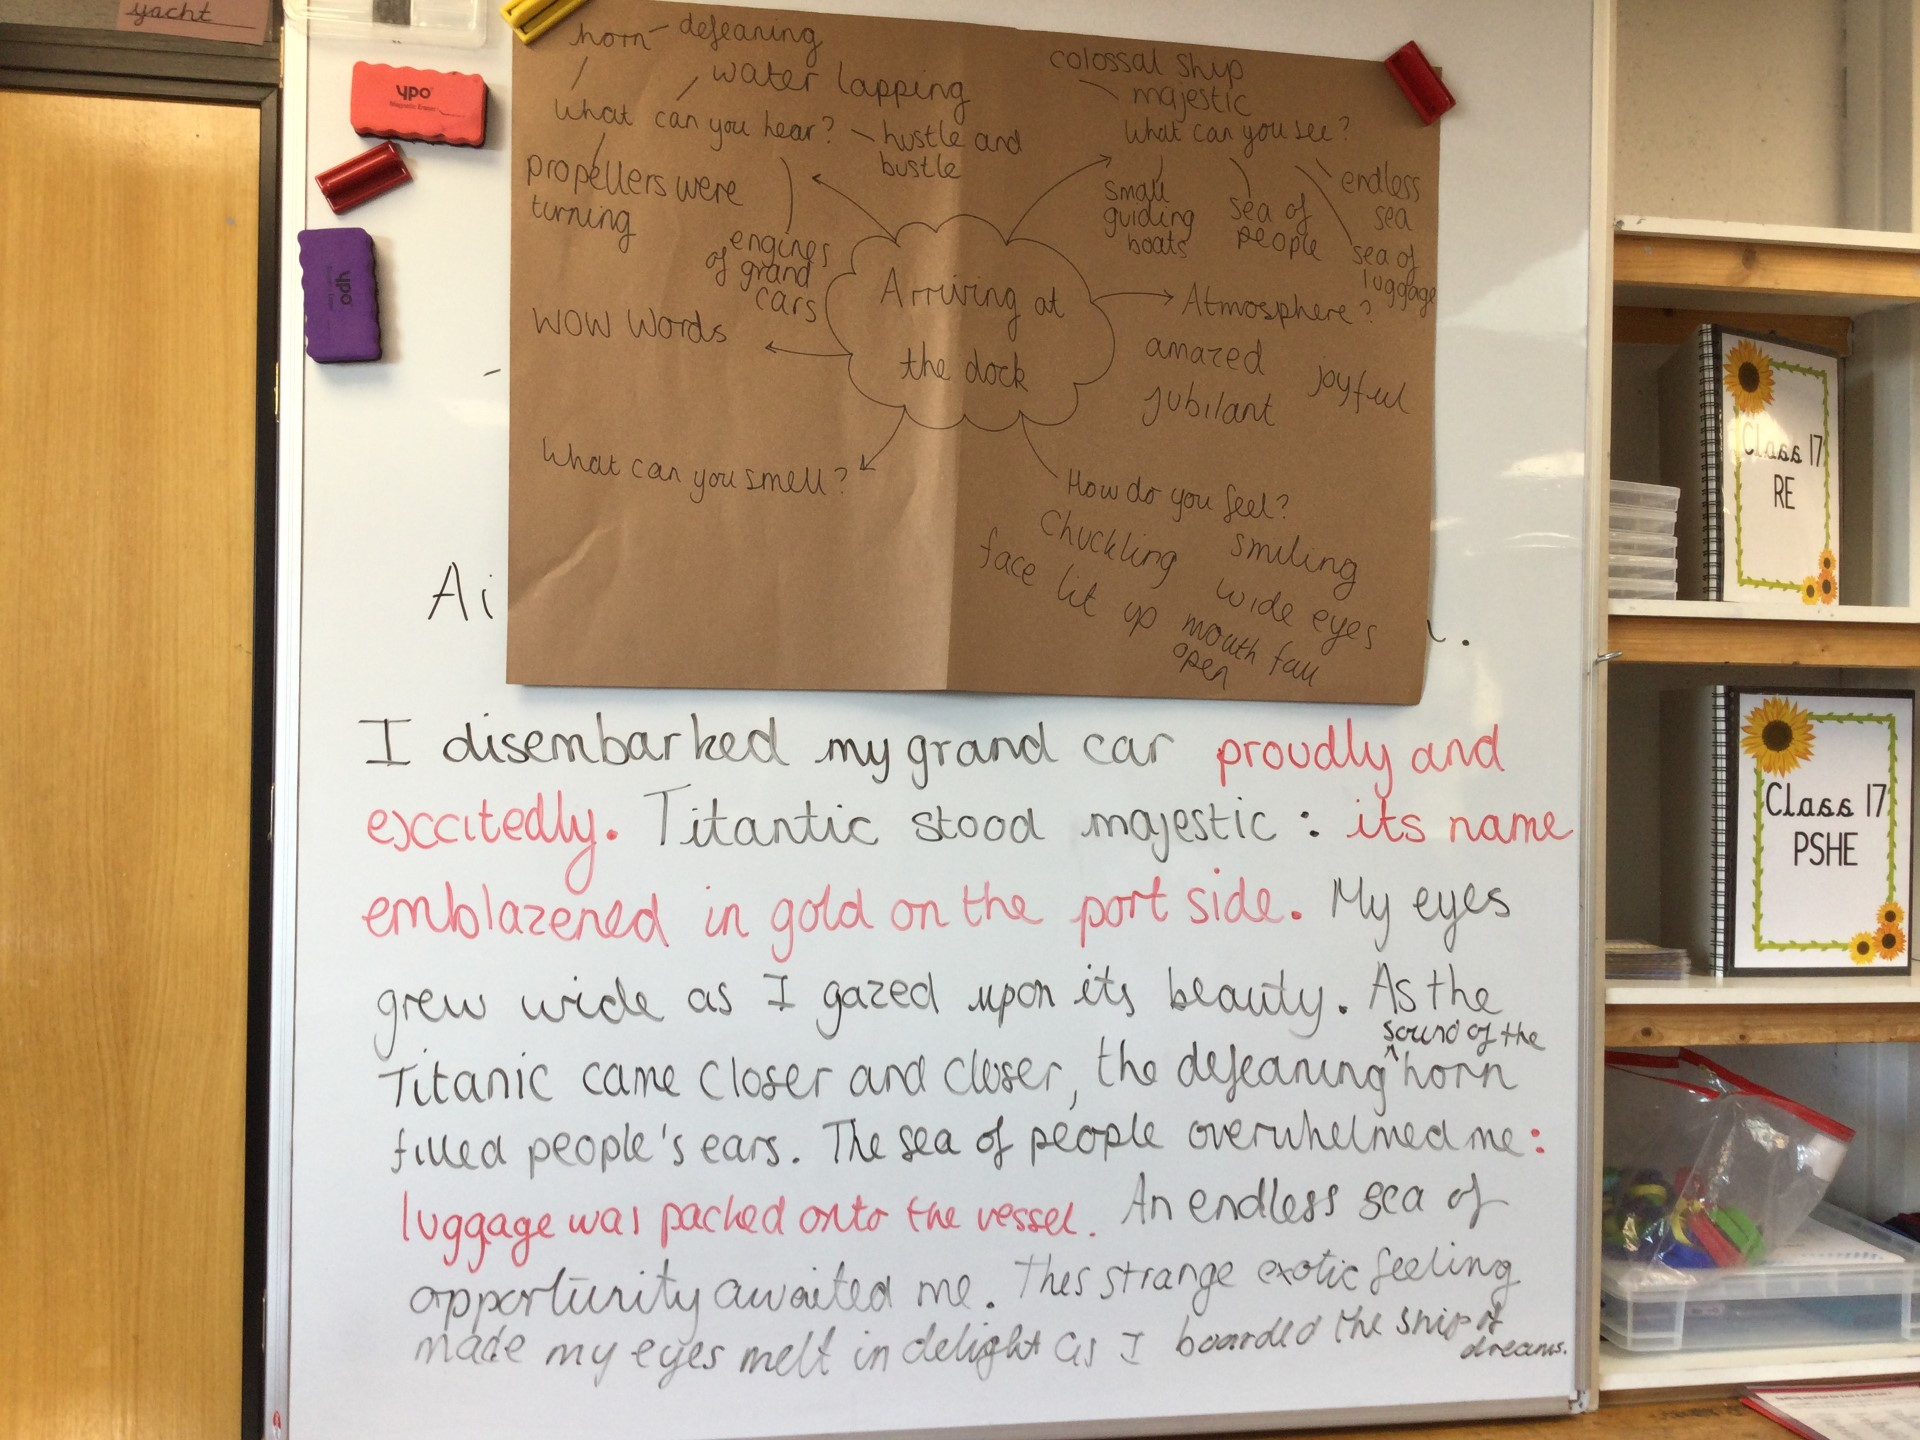 yacht
ypo
ypo
horn - defeaning
water lapping
What can you hear?
hustle and
bustle
propellers were
turning
engines
of grand
cars
colossal ship
majestic
What can you see?
small
guiding
boats
sea of
people
endless
sea
sea of
luggage
Arriving at
the dock
Atmosphere?
amazed
joyful
jubilant
WOW Words
What can you smell?
How do you feel?
Chuckling
smiling
face lit up
wide eyes
mouth fall
open
I disembarked my grand car proudly and
exccitedly. Titantic stood majestic : its name
emblazened in gold on the port side. My eyes
grew wide as I gazed upon its beauty. As the
sound of the
Titanic came closer and closer, the defeaning ^ horn
filled people's ears. The sea of people overwhelmed me:
luggage was packed onto the vessel. An endless sea of
opportunity awaited me. Thes strange exotic feeling
made my eyes melt in delight as I boarded the ship of
dreams.
Class 17
RE
Class 17
PSHE